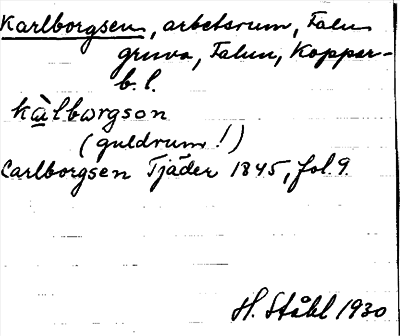 Karlborgsen, arbetsrum, Falu
gruva, Falun, Koppar-
b. l.
kàlbωrgson
(guldrum!)
Carlborgsen Tjäder 1845, fol. 9.
H. Ståhl 1930